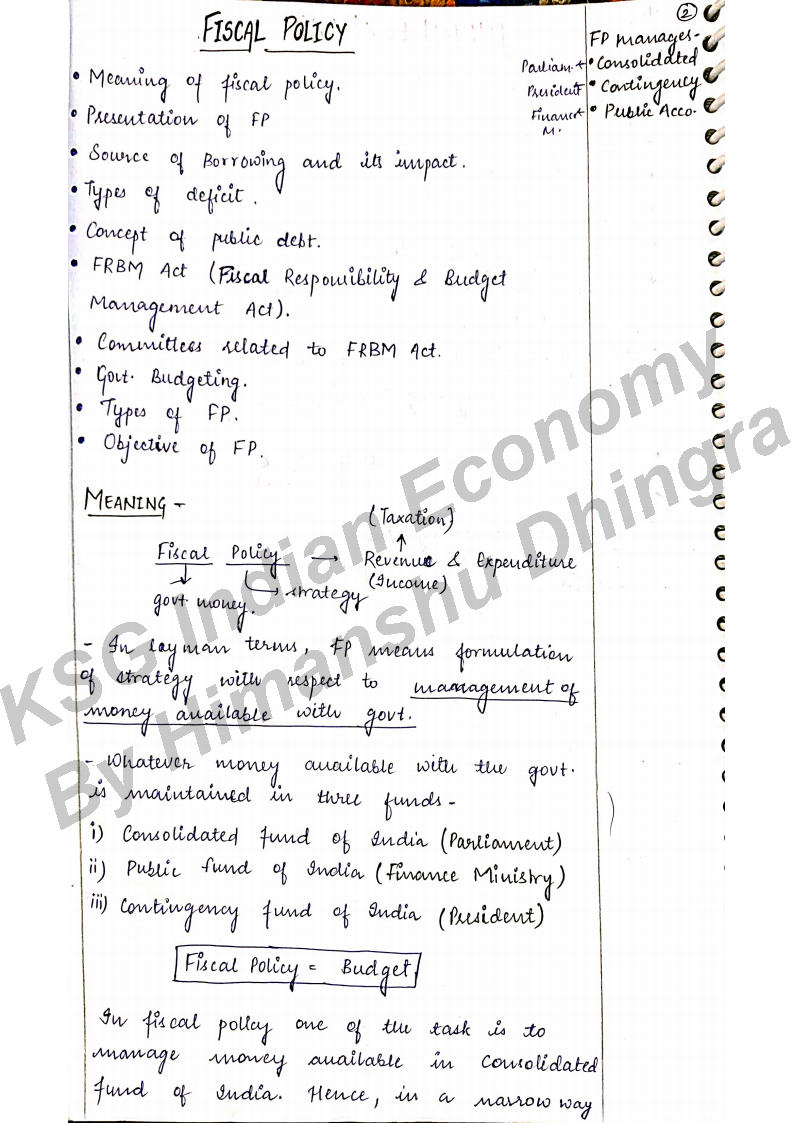 2
FISCAL POLICY
FP manages-
Parliam.t • Consolidated
President • Contingency
Finance M. • Public Acco.
• Meaning of fiscal policy.
• Presentation of FP
• Source of Borrowing and its impact.
• Types of deficit.
• Concept of public debt.
• FRBM Act (Fiscal Responsibility & Budget
Management Act).
• Committees related to FRBM Act.
• Govt. Budgeting.
• Types of FP.
• Objective of FP.
MEANING -
(Taxation)
Fiscal Policy → Revenue & Expenditure
(Income)
govt money. strategy
- In layman terms, FP means formulation
of strategy with respect to management of
money available with govt.
- Whatever money available with the govt.
is maintained in three funds -
i) Consolidated fund of India (Parliament)
ii) Public fund of India (Finance Ministry)
iii) Contingency fund of India (President)
Fiscal Policy = Budget
In fiscal policy one of the task is to
manage money available in Consolidated
fund of India. Hence, in a narrow way
KSG Indian Economy
By Himanshu Dhingra